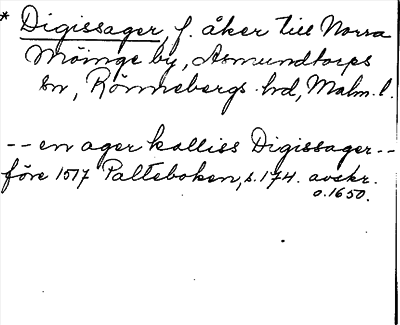 * Digissager, f. åker till Norra
Möinge by, Asmundtorps
sn, Rönnebergs hd, Malm. l.
-- en ager kalliss Digissager --
före 1517 Palteboken, s. 174. avskr.
o. 1650.